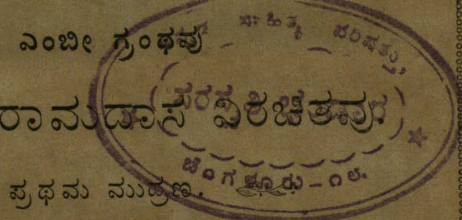 ಎಂಬೀ ಗ್ರಂಥವು
ರಾಮದಾಸ ವಿರಚಿತವು
ಪ್ರಥಮ ಮುದ್ರಣ.
ಸಾಹಿತ್ಯ ಪರಿಷತ್ತು,
ಬೆಂಗಳೂರು - ೧೮.